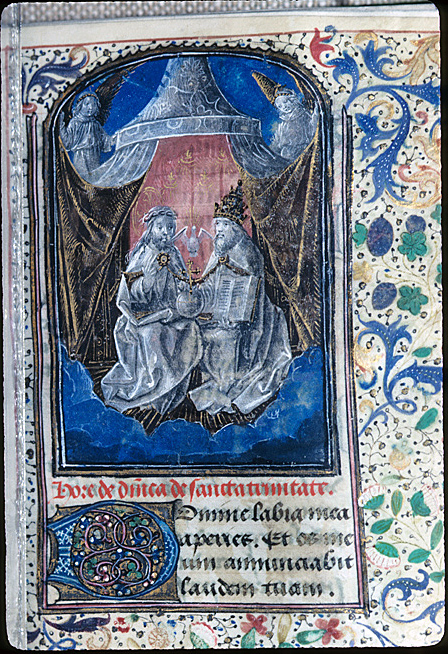 Hore de dñica de sancta trinitate.
Domine labia mea
aperies. Et os me
um annunciabit
laudem tuam.